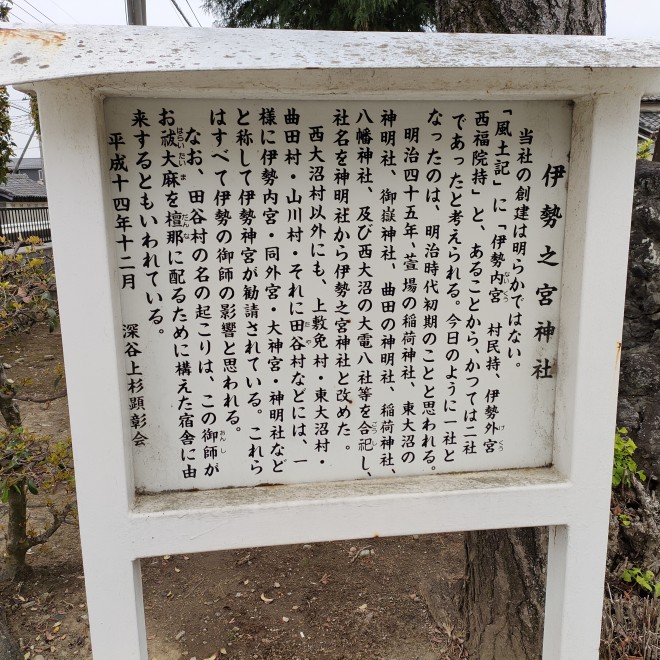 伊勢之宮神社
当社の創建は明らかではない。
「風土記」に「伊勢内宮　村民持、伊勢外宮
西福院持」と、あることから、かつては二社
であったと考えられる。今日のように一社と
なったのは、明治時代初期のことと思われる。
明治四十五年、萱場の稲荷神社、東大沼の
神明社、御嶽神社、曲田の神明社、稲荷神社、
八幡神社、及び西大沼の大電八社等を合祀し、
社名を神明社から伊勢之宮神社と改めた。
西大沼村以外にも、上敷免村・東大沼村・
曲田村・山川村・それに田谷村などには、一
様に伊勢内宮・同外宮・大神宮・神明社など
と称して伊勢神宮が勧請されている。これら
はすべて伊勢の御師の影響と思われる。
なお、田谷村の名の起こりは、この御師が
お祓大麻を檀那に配るために構えた宿舎に由
来するともいわれている。
平成十四年十二月　深谷上杉顕彰会